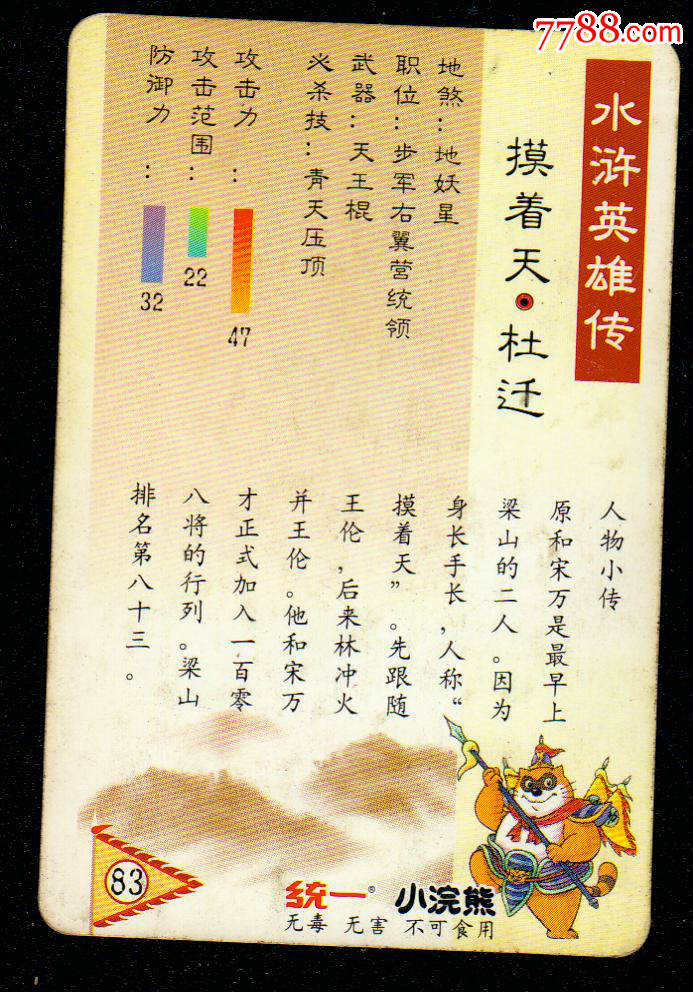 7788.com
水浒英雄传
摸着天·杜迁
地煞：地妖星
职位：步军右翼营统领
武器：天王棍
必杀技：青天压顶
攻击力：
47
攻击范围：
22
防御力：
32
人物小传
原和宋万是最早上
梁山的二人。因为
身长手长，人称“
摸着天”。先跟随
王伦，后来林冲火
并王伦。他和宋万
才正式加入一百零
八将的行列。梁山
排名第八十三。
83
统一® 小浣熊
无毒 无害 不可食用